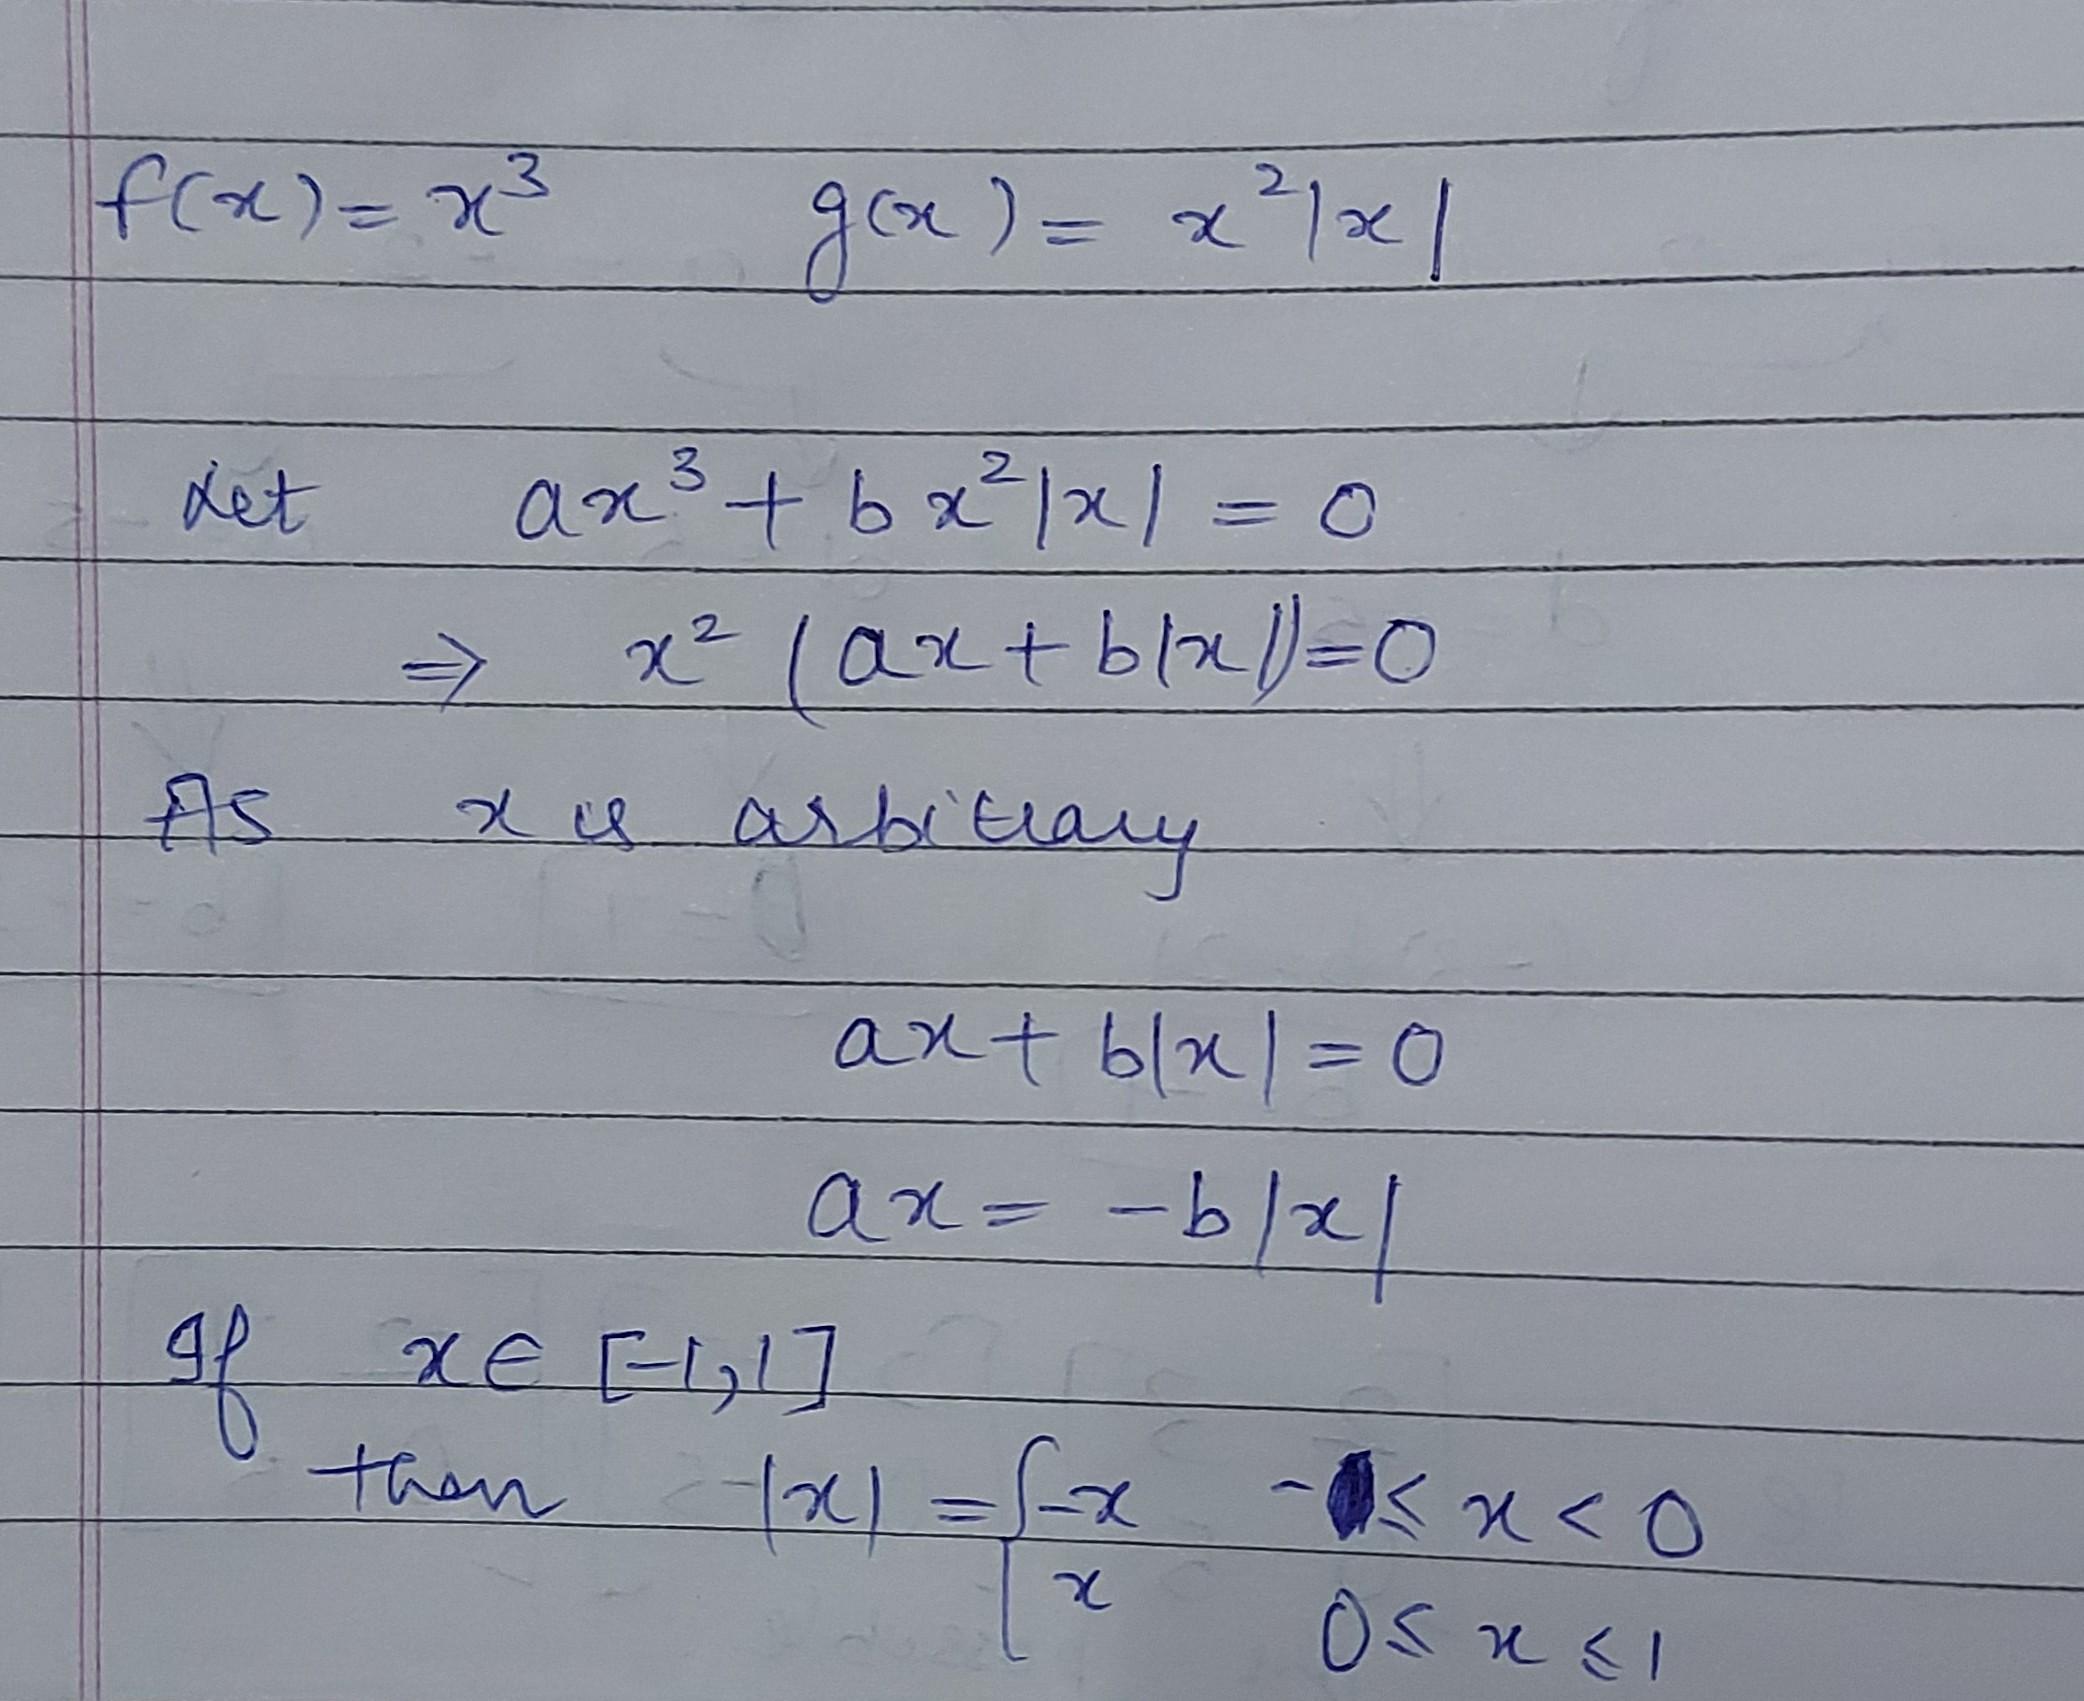 f(x) = x³ g(x) = x²|x|
Let ax³ + bx²|x| = 0
⇒ x² (ax + b|x|) = 0
As x is arbitrary
ax + b|x| = 0
ax = -b|x|
If x ∈ [-1,1]
then |x| = { -x -1 ≤ x < 0
x 0 ≤ x ≤ 1